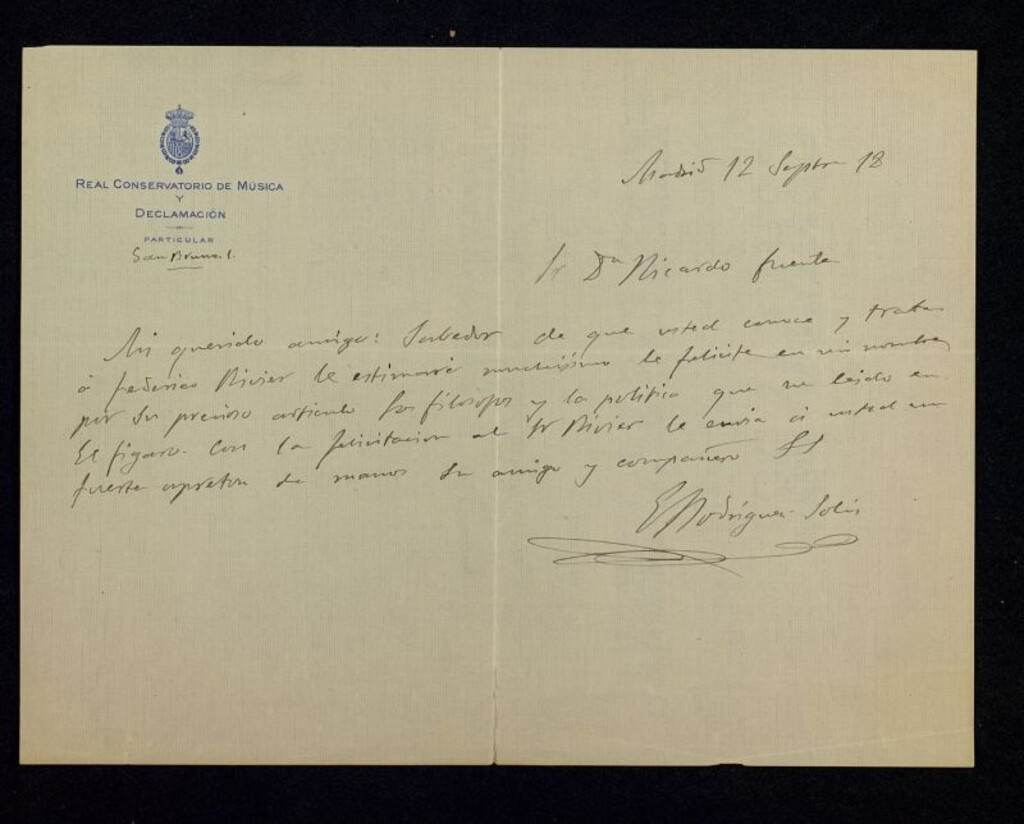 REAL CONSERVATORIO DE MÚSICA
Y
DECLAMACIÓN
PARTICULAR
San Bruno. 1.
Madrid 12 Septre 18
Sr Dn Ricardo fuente
Mi querido amigo: Sabedor de que usted conoce y trata
á federico Rivier le estimaré muchísimo le felicite en mi nombre
por su precioso artículo Los filosofos y la politica que he leido en
El figaro. Con la felicitacion al Sr Rivier le envia á usted un
fuerte apreton de manos su amigo y compañero
E Rodríguez-Solis